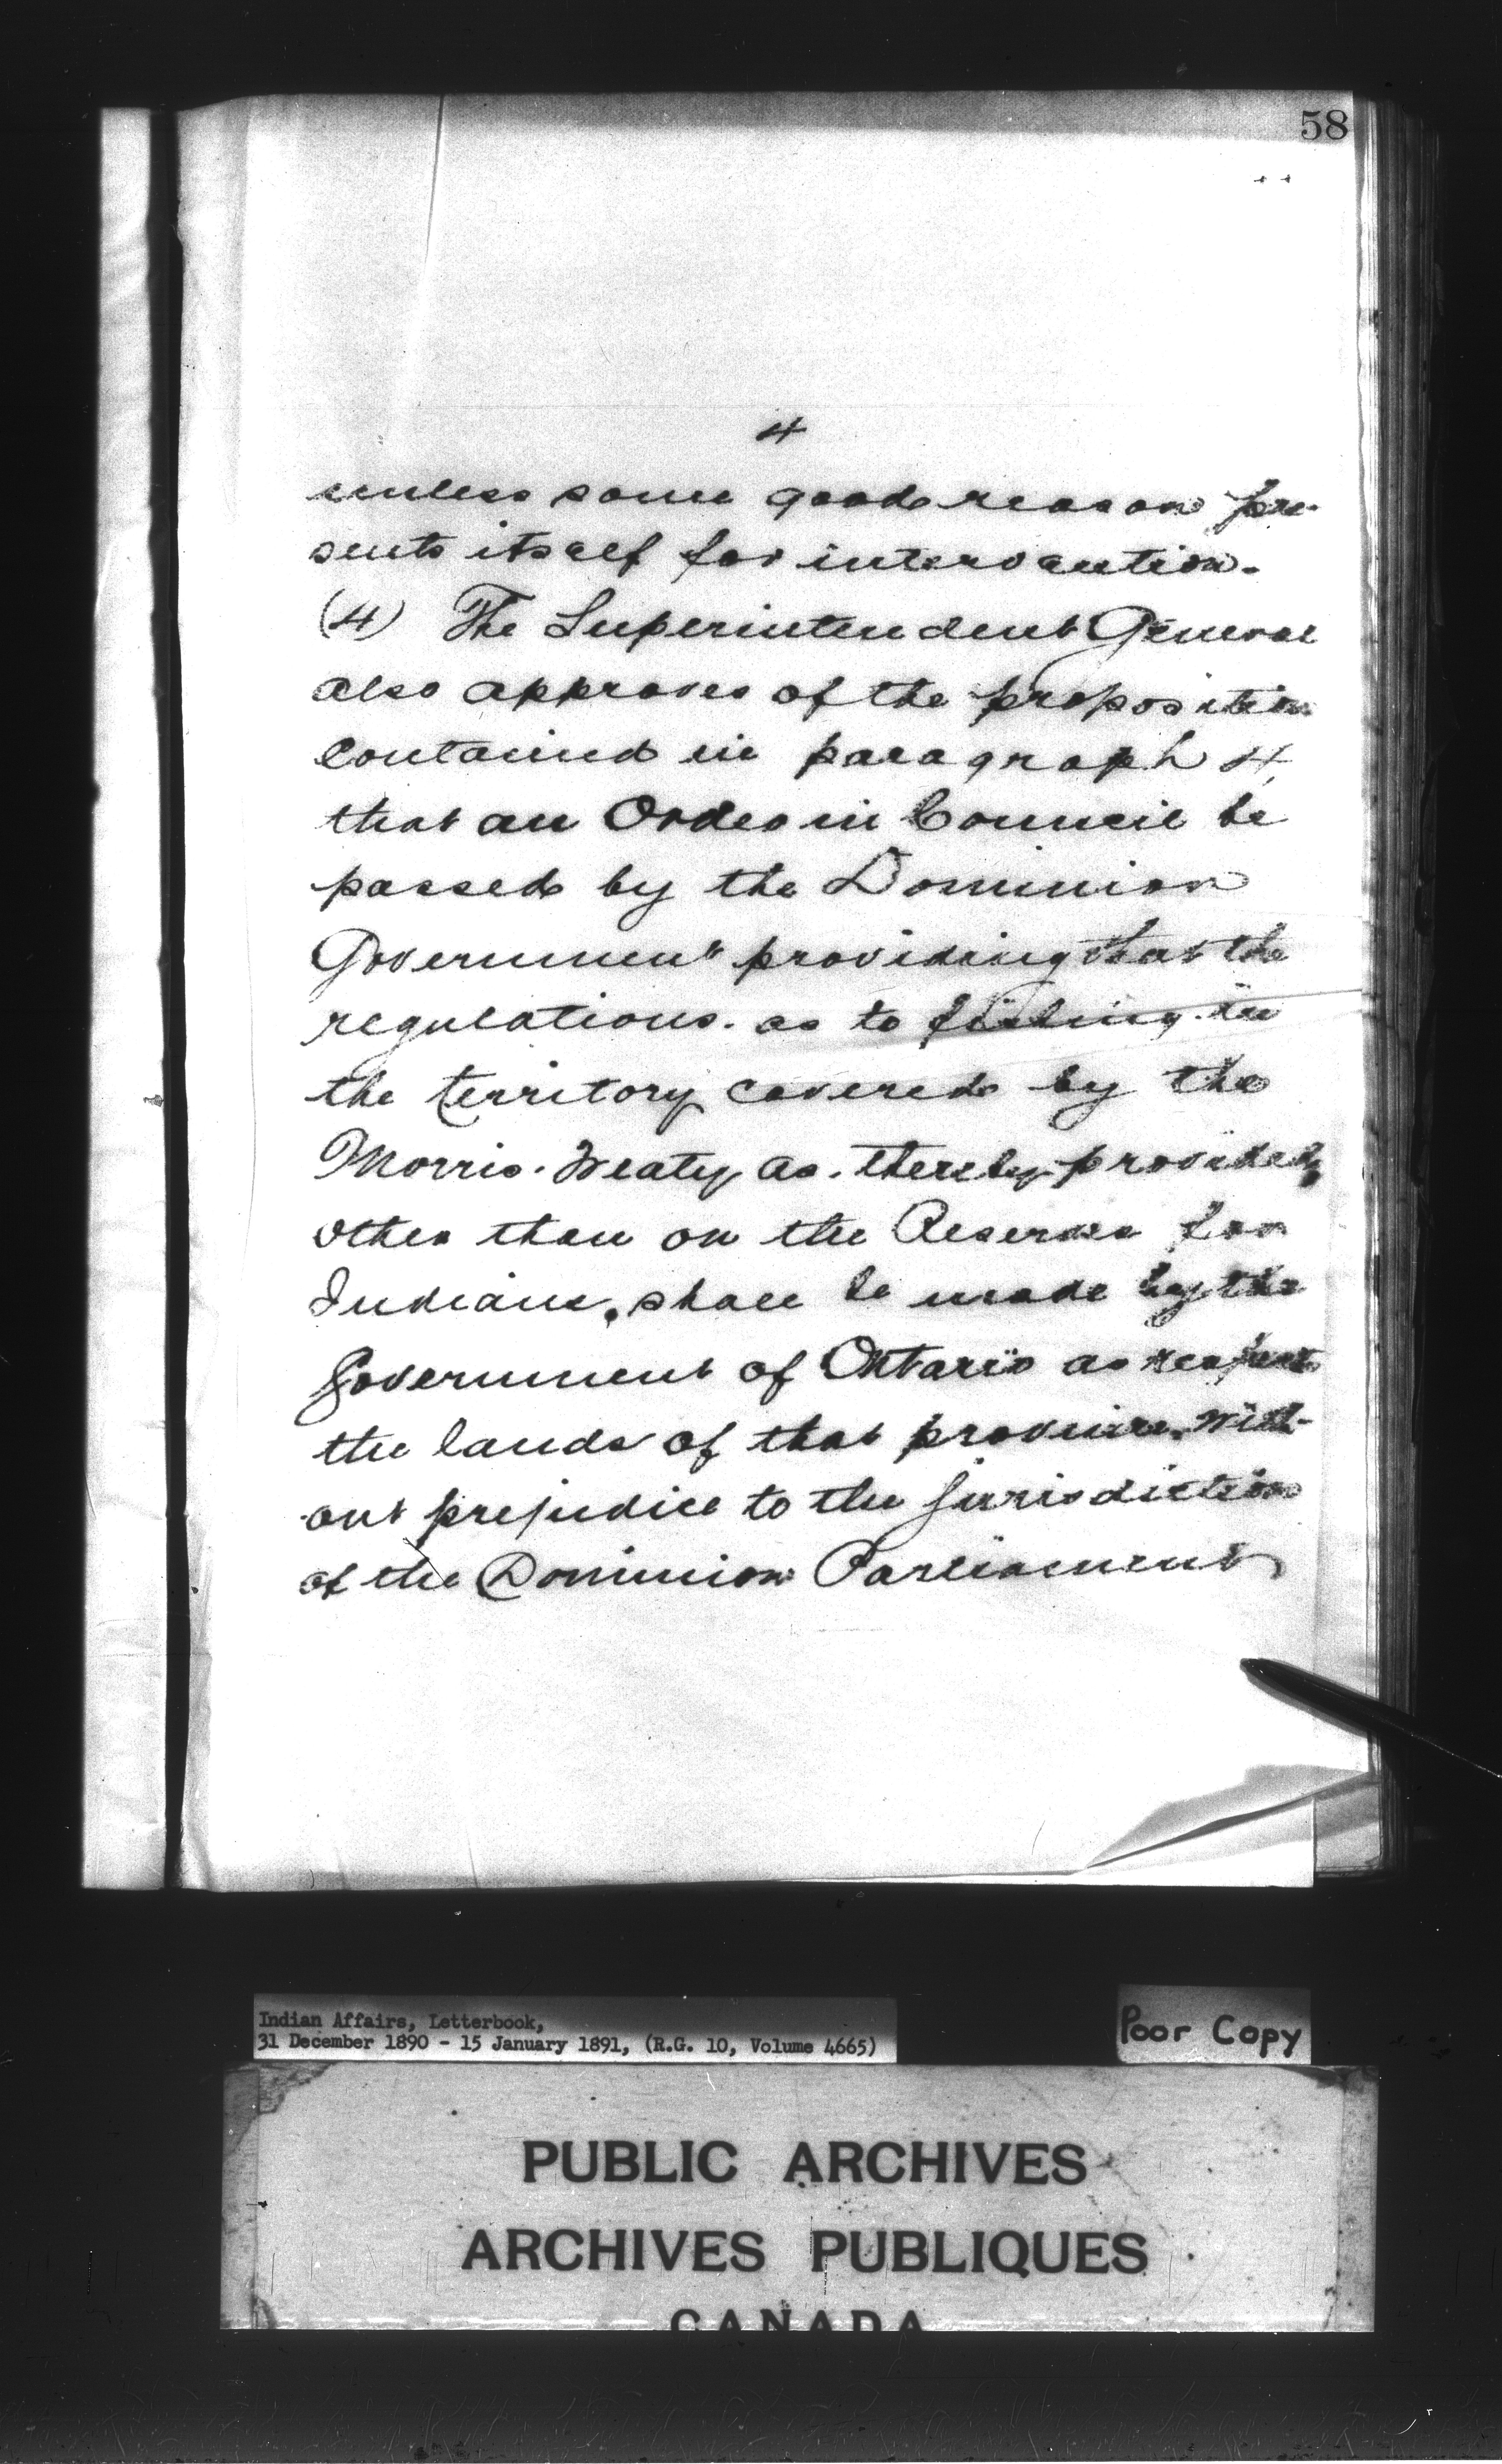 58
4
unless some good reason pre-
sents itself for intervention.
(4) The Superintendent General
also approves of the proposition
contained in paragraph 4
that an Order in Council be
passed by the Dominion
Government providing that the
regulations as to fishing in
the territory covered by the
Morris Treaty as thereby provided,
other than on the Reserves for
Indians, shall be made by the
Government of Ontario as respects
the lands of that province, with-
out prejudice to the jurisdiction
of the Dominion Parliament
Indian Affairs, Letterbook,
31 December 1890 - 15 January 1891, (R.G. 10, Volume 4665)
Poor Copy
PUBLIC ARCHIVES
ARCHIVES PUBLIQUES
CANADA